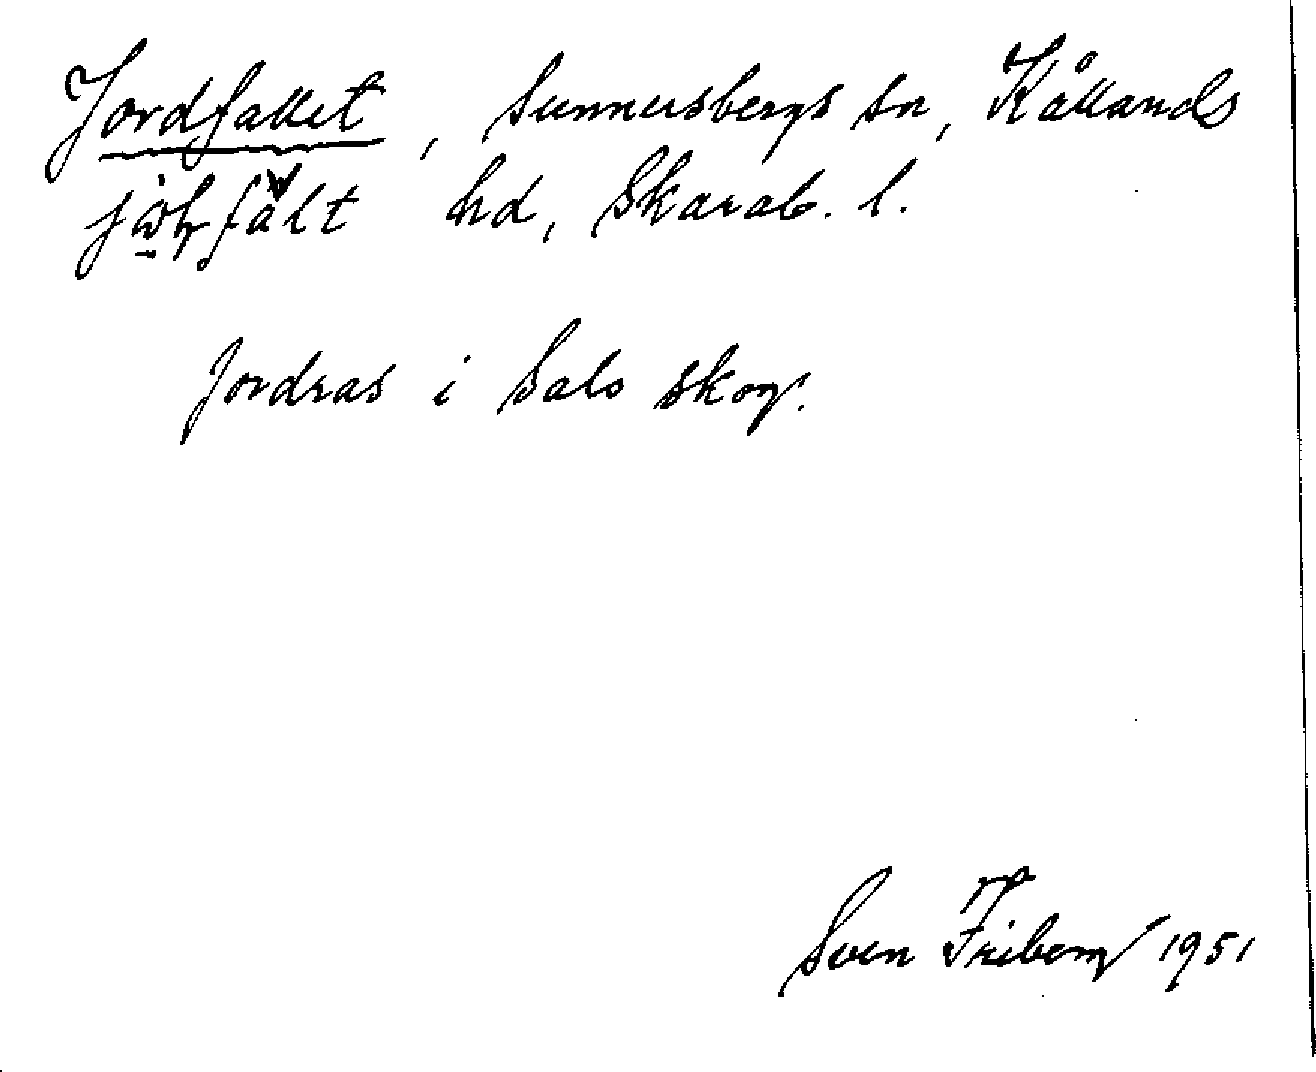 Jordfallet, Sunnersbergs sn, Kållands
hd, Skarab. l.
Jordras i Sals skog.
Sven Friberg 1951